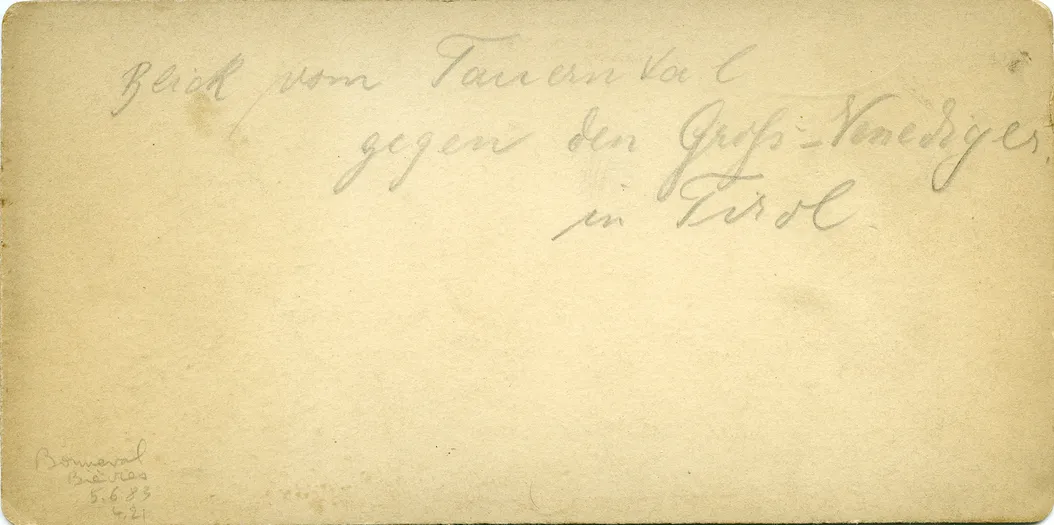 Blick vom Tauerntal
gegen den Groß-Venediger
in Tirol
Bonneval
Bièvres
5.6.83
4.21